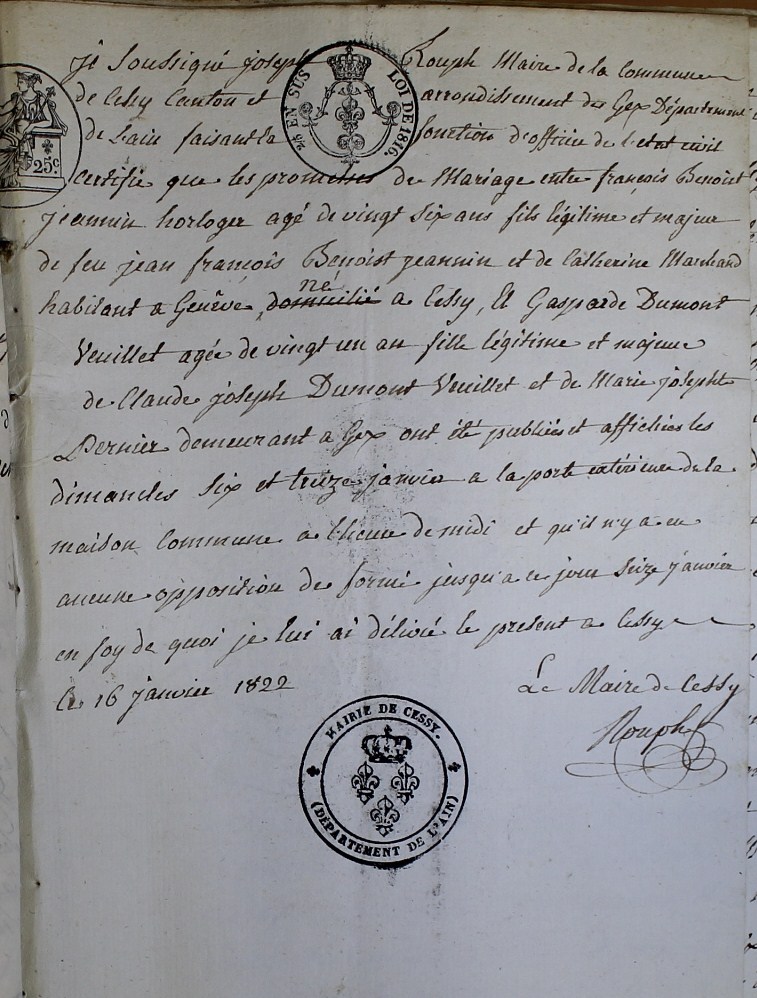 je Soussigné joseph Rouph Maire de la Commune
de Cessy Canton et arrondissement de Gex Département
de L'ain faisant la fonction d'officier de l'etat civil
certifie que les promesses de Mariage entre françois Benoist
jeannin horloger agé de vingt six ans fils légitime et majeur
de feu jean françois Benoist jeannin et de Catherine Marchand
né
habitant a Genêve, domicilié a Cessy, Et Gasparde Dumont
Veuillet agée de vingt un an fille légitime et majeure
de Claude joseph Dumont Veuillet et de Marie josephte
Pernier demeurant a Gex ont été publiées et affichées les
dimanches six et treize janvier a la porte extérieure de la
maison Commune a l'heure de midi et qu'il n'y a eu
aucune opposition de formé jusqu'a ce jour seize janvier
en foy de quoi je lui ai délivré le present a Cessy
Ce 16 janvier 1822
Le Maire de Cessy
Rouph
25 c
2/5 EN SUS
LOI DE 1816.
MAIRIE DE CESSY.
(DÉPARTEMENT DE L'AIN)